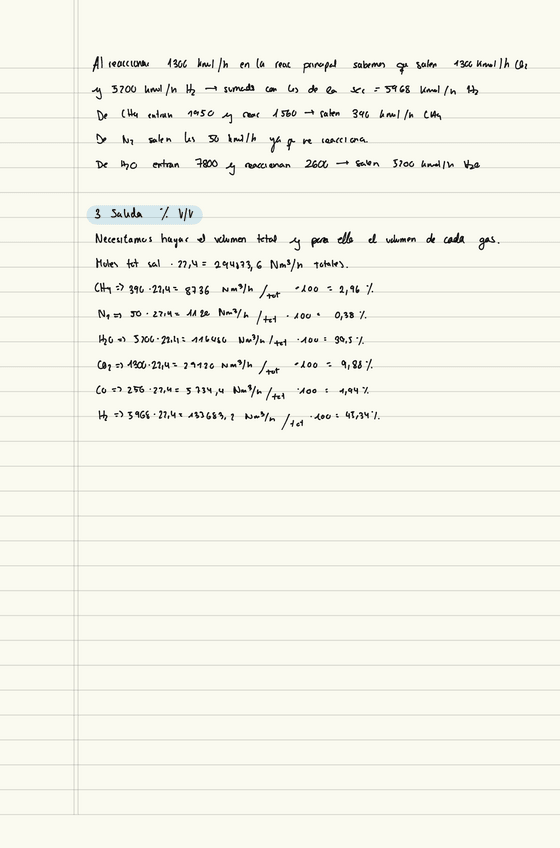 Al reaccionar 1300 kmol/h en la reac principal sabemos qu salen 1300 kmol/h CO2
y 5200 kmol/h H2 → sumado con los de la sec = 5968 kmol/h H2
De CH4 entran 1950 y reac 1560 → salen 390 kmol/h CH4
De N2 salen los 50 kmol/h ya q no reacciona.
De H2O entran 7800 y reaccionan 2600 → salen 5200 kmol/h H2O
3 Salida % V/V
Necesitamos hayar el volumen total y para ello el volumen de cada gas.
Moles tot sal · 22,4 = 294873,6 Nm³/h totales.
CH4 => 390 · 22,4 = 8736 Nm³/h /tot · 100 = 2,96 %
N2 => 50 · 22,4 = 1120 Nm³/h /tot · 100 = 0,38 %
H2O => 5200 · 22,4 = 116480 Nm³/h /tot · 100 = 39,5 %
CO2 => 1300 · 22,4 = 29120 Nm³/h /tot · 100 = 9,88 %
CO => 256 · 22,4 = 5734,4 Nm³/h /tot · 100 = 1,94 %
H2 => 5968 · 22,4 = 133683,2 Nm³/h /tot · 100 = 45,34 %.